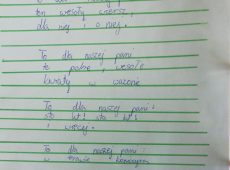 ten wesoły wiersz,
dla niej i o niej.
To dla naszej pani
te polne, wesołe
kwiaty w wazonie
To dla naszej pani:
sto lat! sto lat!
i więcej.
To dla naszej pani
w trawie